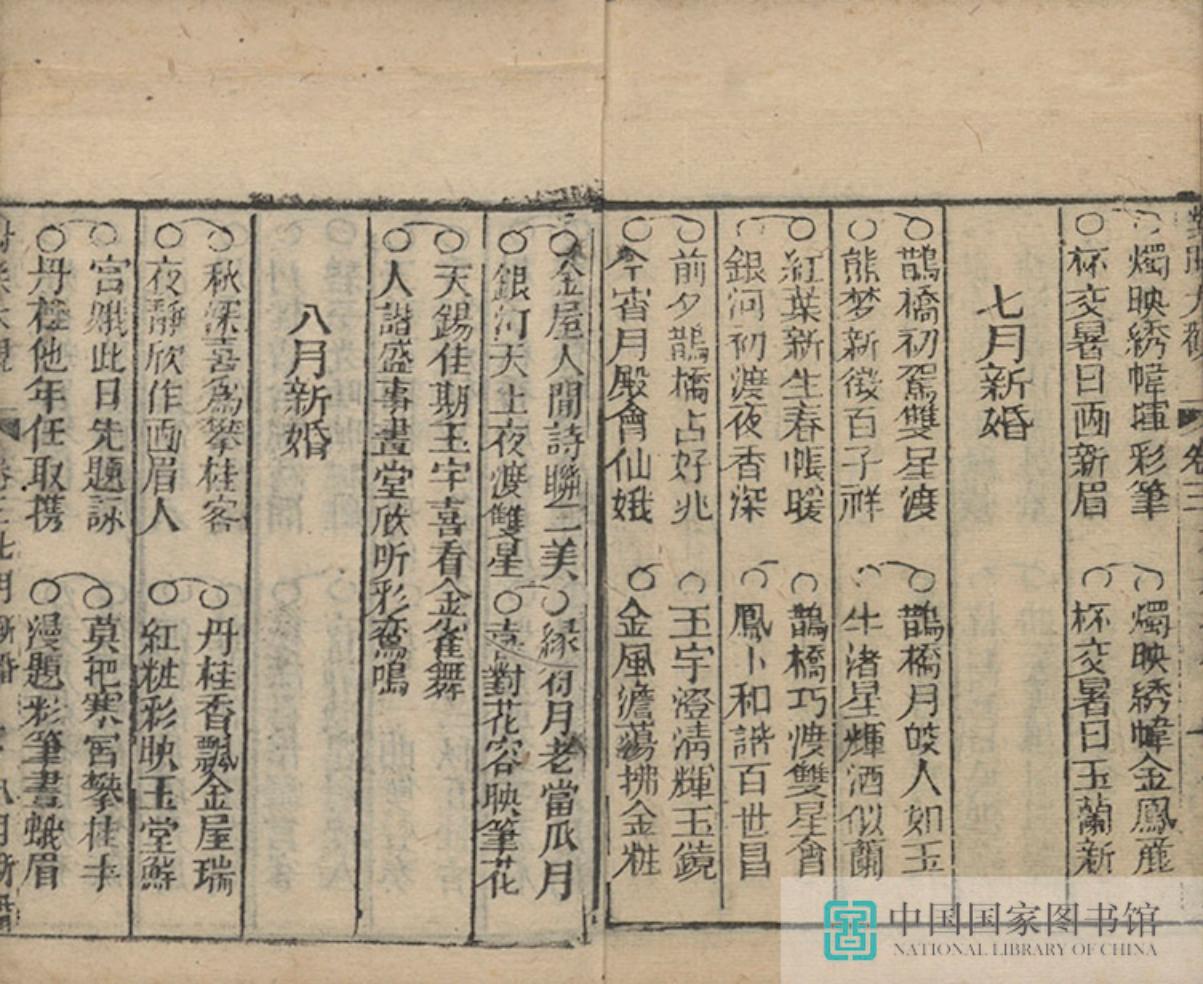 燭映綉幃揮彩筆
杯交暑日画新眉
燭映綉幃金鳳麗
杯交暑日玉蘭新
七月新婚
鵲橋初駕雙星渡
熊梦新徵百子祥
鵲橋月皎人如玉
牛渚星輝酒似蘭
紅葉新生春帳暖
銀河初渡夜香深
鵲橋巧渡雙星會
鳳卜和諧百世昌
前夕鵲橋占好兆
今宵月殿會仙娥
玉宇澄清輝玉鏡
金風澹蕩拂金粧
金屋人間詩聯二美
銀河天上夜渡雙星
緣月老當瓜月
喜對花容映筆花
天錫佳期玉宇喜看金雀舞
人諧盛事畫堂欣听彩鸞鳴
八月新婚
秋深喜爲攀桂客
夜靜欣作画眉人
丹桂香飄金屋瑞
紅粧彩映玉堂鮮
宫娥此日先題詠
丹桂他年任取携
莫把寒宫攀桂手
漫題彩筆畫蛾眉
中国国家图书馆
NATIONAL LIBRARY OF CHINA